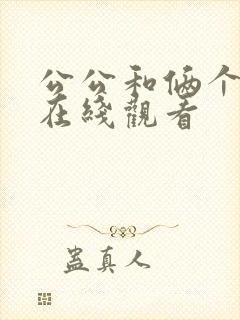 公公和俩个
在綫觀看
蛊真人